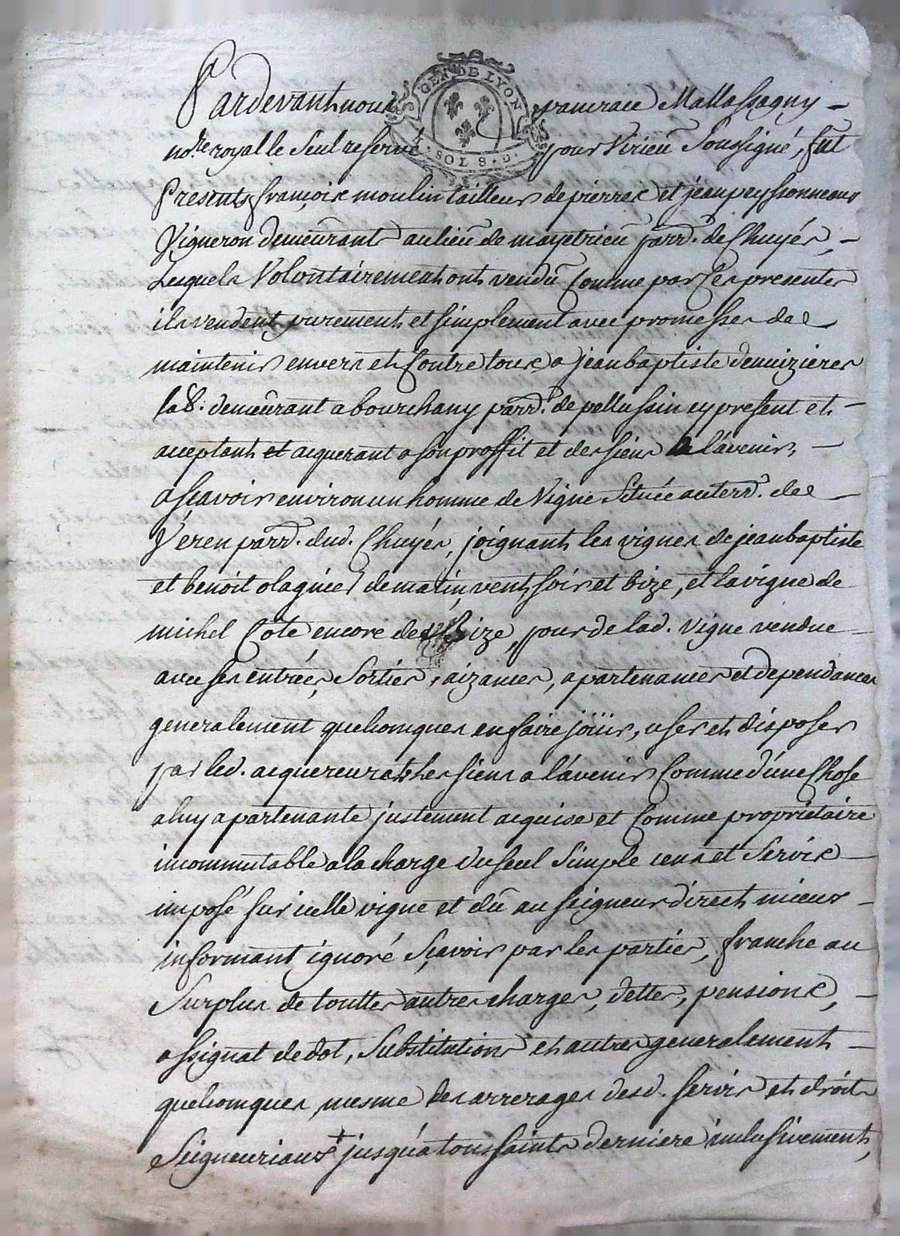 GEN DE LYON
SOLS D.
Pardevant nous pancrace Mallassagny -
nore. royal le Seul reservé pour Virieu Soussigné, fut
Presents françois moulin tailleur de pierres et jean peyssonneaux
Vigneron demeurant au lieu de parr. de Chuyés, -
Lesquels Volontairement ont vendu Comme par Ces presentes
ils vendent purement et simplement avec promesses de
maintenir envers et Contre tous, a jean baptiste
lab. demeurant a bourchany parr. de pellussin cy present et -
acceptant et acquerant a son proffit et des siens a l'avenir, -
a scavoir environ un homme de Vigne Située au terr. de -
Veren parr. dud. Chuyés, joignant les vignes de jean baptiste
et benoit olagnier de matin, vent, soir et bize, et la vigne de
michel Cote encore de bize, pour de lad. vigne vendue -
avec ses entrées, Sorties, aizances, apartenances et dependances
generalement quelconques en faire joüir, user et disposer
par led. acquereur et les siens a l'avenir Comme d'une Chose
a luy apartenante justement acquise et Comme proprietaire
incommutable a la charge du seul Simple cens et Servis -
imposé sur icelle vigne et dû au seigneur direct mieux -
informant ignoré Scavoir par les parties, franche au
Surplus de touttes autres charges, dettes, pensions, -
assignat de dot, Substitutions et autres generalement -
quelconques, mesme des arrerages desd. servis et droits
Seigneuriaux + jusqu'a toussaints derniere inclusivement,